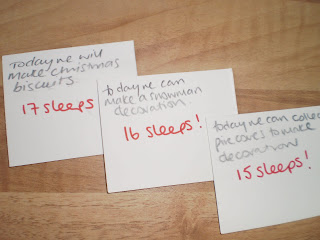 Today we will
make christmas
biscuits
17 sleeps
today we can
make a snowman
decoration
16 sleeps!
today we can collec
pine cones to make
decorations
15 sleeps!